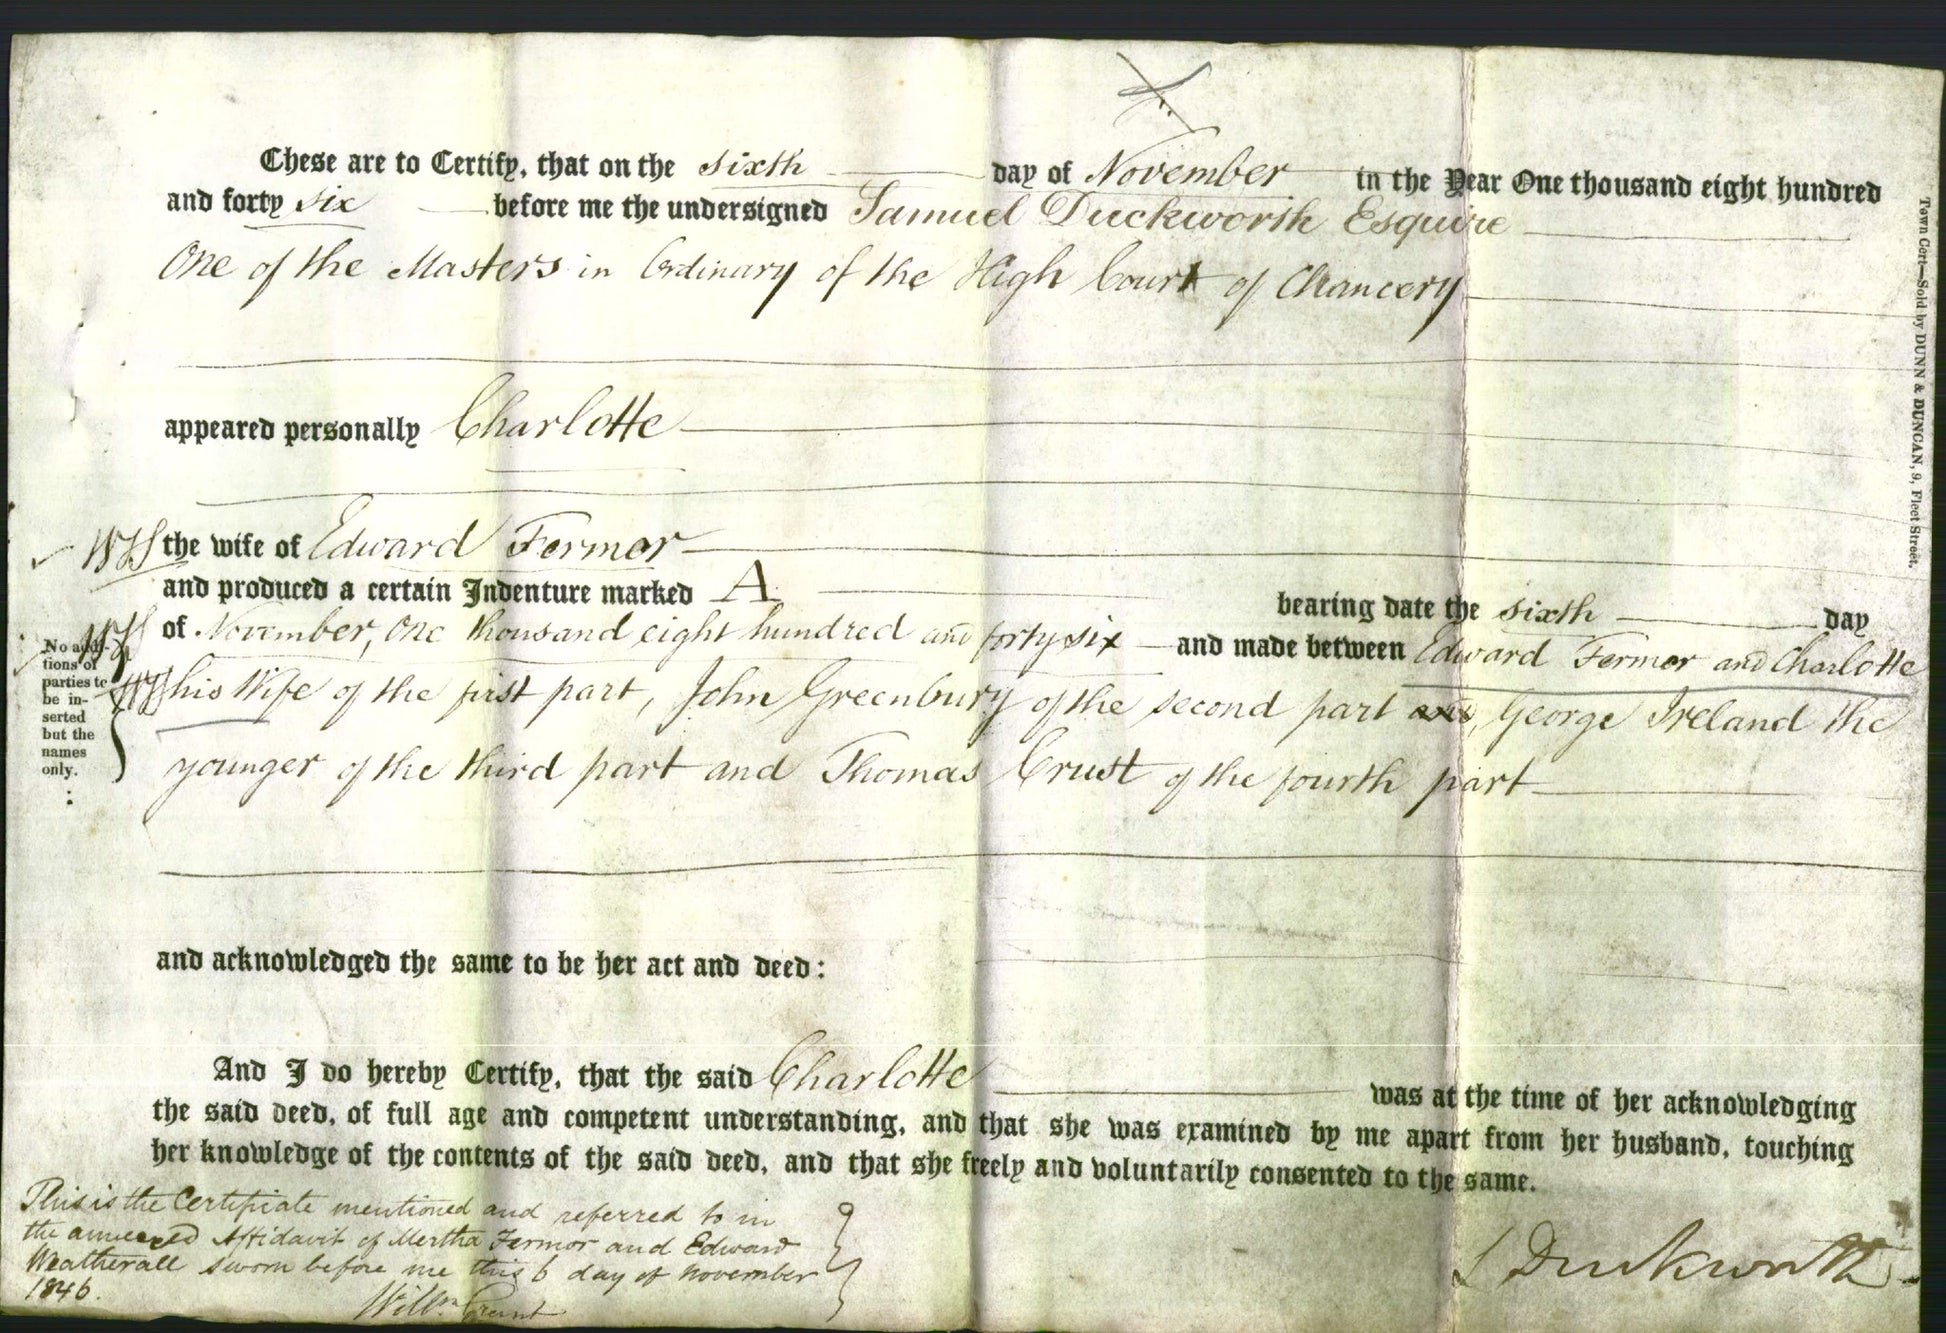 These are to Certify, that on the sixth day of November in the Year One thousand eight hundred
and forty six before me the undersigned Samuel Duckworth Esquire
One of the Masters in Ordinary of the High Court of Chancery
appeared personally Charlotte
the wife of Edward Fermor
and produced a certain Indenture marked A bearing date the sixth day
of November, One thousand eight hundred and forty six and made between Edward Fermor and Charlotte
his Wife of the first part, John Greenbury of the second part, George Ireland the
younger of the third part and Thomas Crust of the fourth part
No addi-
tions of
parties to
be in-
serted
but the
names
only.
and acknowledged the same to be her act and deed:
And I do hereby Certify, that the said Charlotte was at the time of her acknowledging
the said deed, of full age and competent understanding, and that she was examined by me apart from her husband, touching
her knowledge of the contents of the said deed, and that she freely and voluntarily consented to the same.
This is the Certificate mentioned and referred to in
the annexed Affidavit of Fermor and Edward
Weatherall sworn before me this 6 day of November
1846.
Willm Grant
S Duckworth
Town Cert—Sold by DUNN & DUNCAN, 9, Fleet Street.